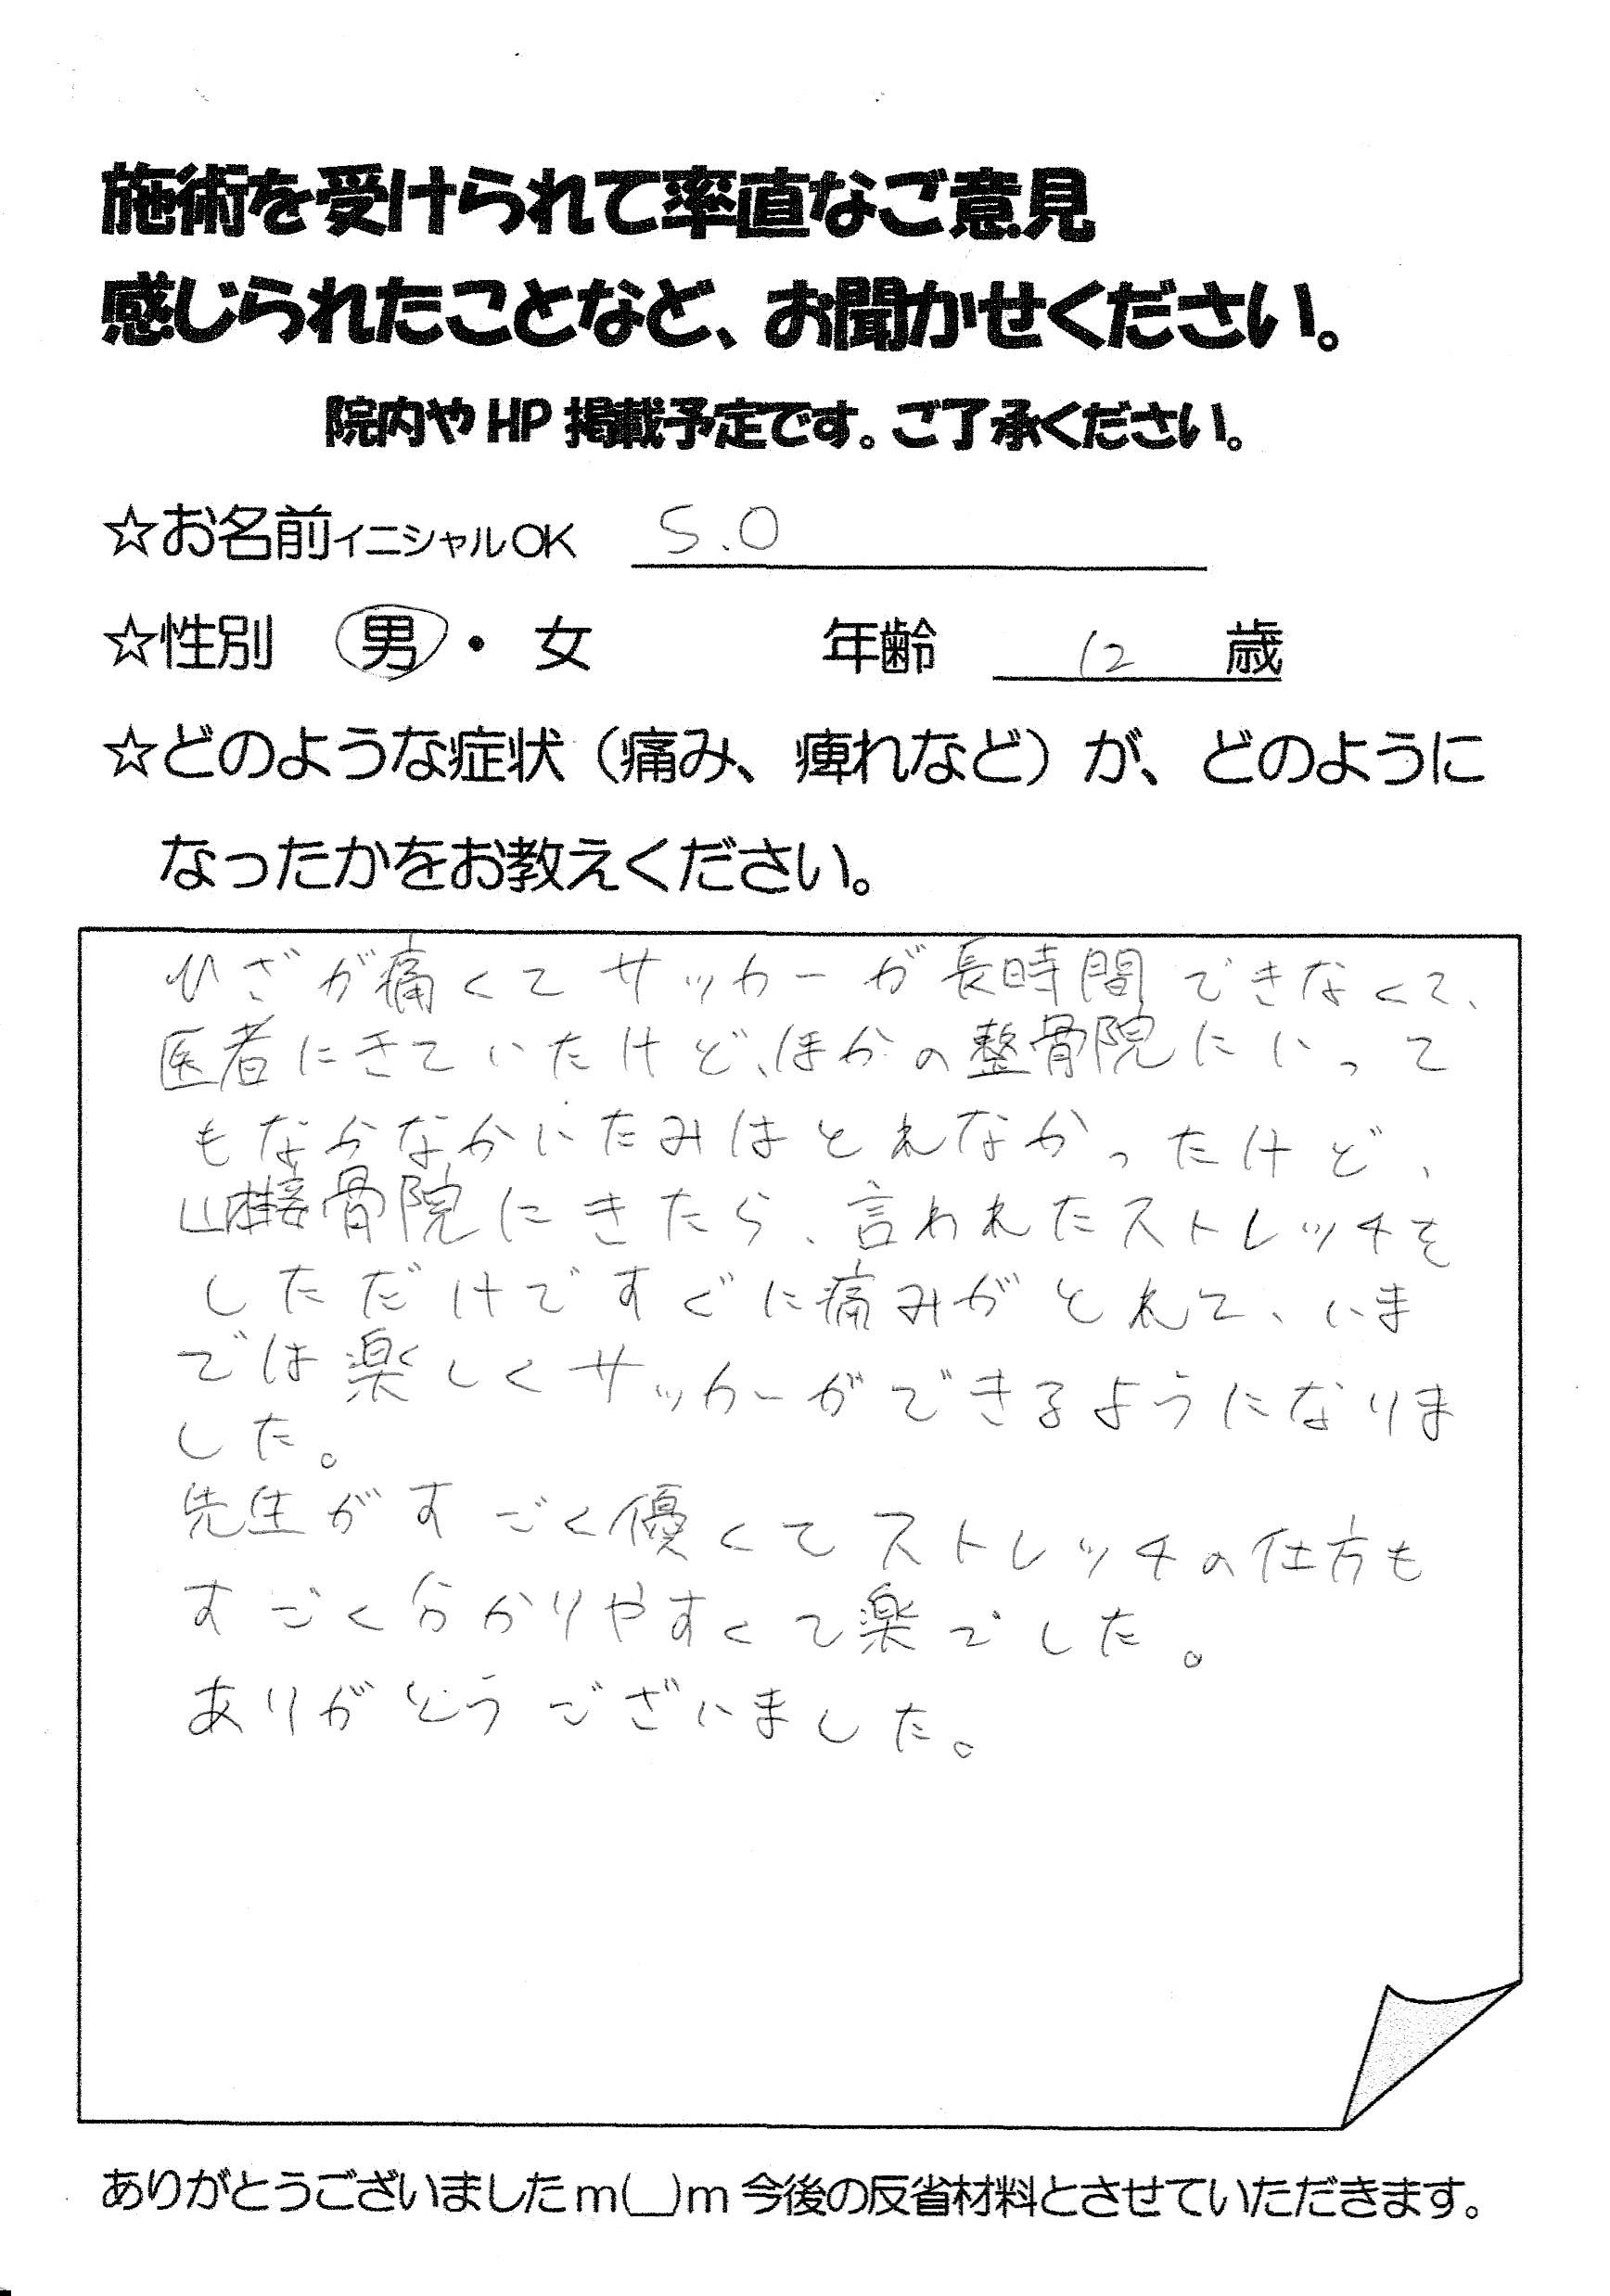 施術を受けられて率直なご意見
感じられたことなど、お聞かせください。
院内や HP 掲載予定です。ご了承ください。
☆お名前イニシャルOK S.O
☆性別 男・女 年齢 12 歳
☆どのような症状（痛み、痺れなど）が、どのように
なったかをお教えください。
ひざが痛くてサッカーが長時間できなくて、
医者にきていたけど、ほかの整骨院にいって
もなかなかいたみはとれなかったけど、
接骨院にきたら、言われたストレッチを
しただけですぐに痛みがとれて、いま
では楽しくサッカーができるようになりま
した。
先生がすごく優くてストレッチの仕方も
すごく分かりやすくて楽でした。
ありがとうございました。
ありがとうございましたm(__)m 今後の反省材料とさせていただきます。